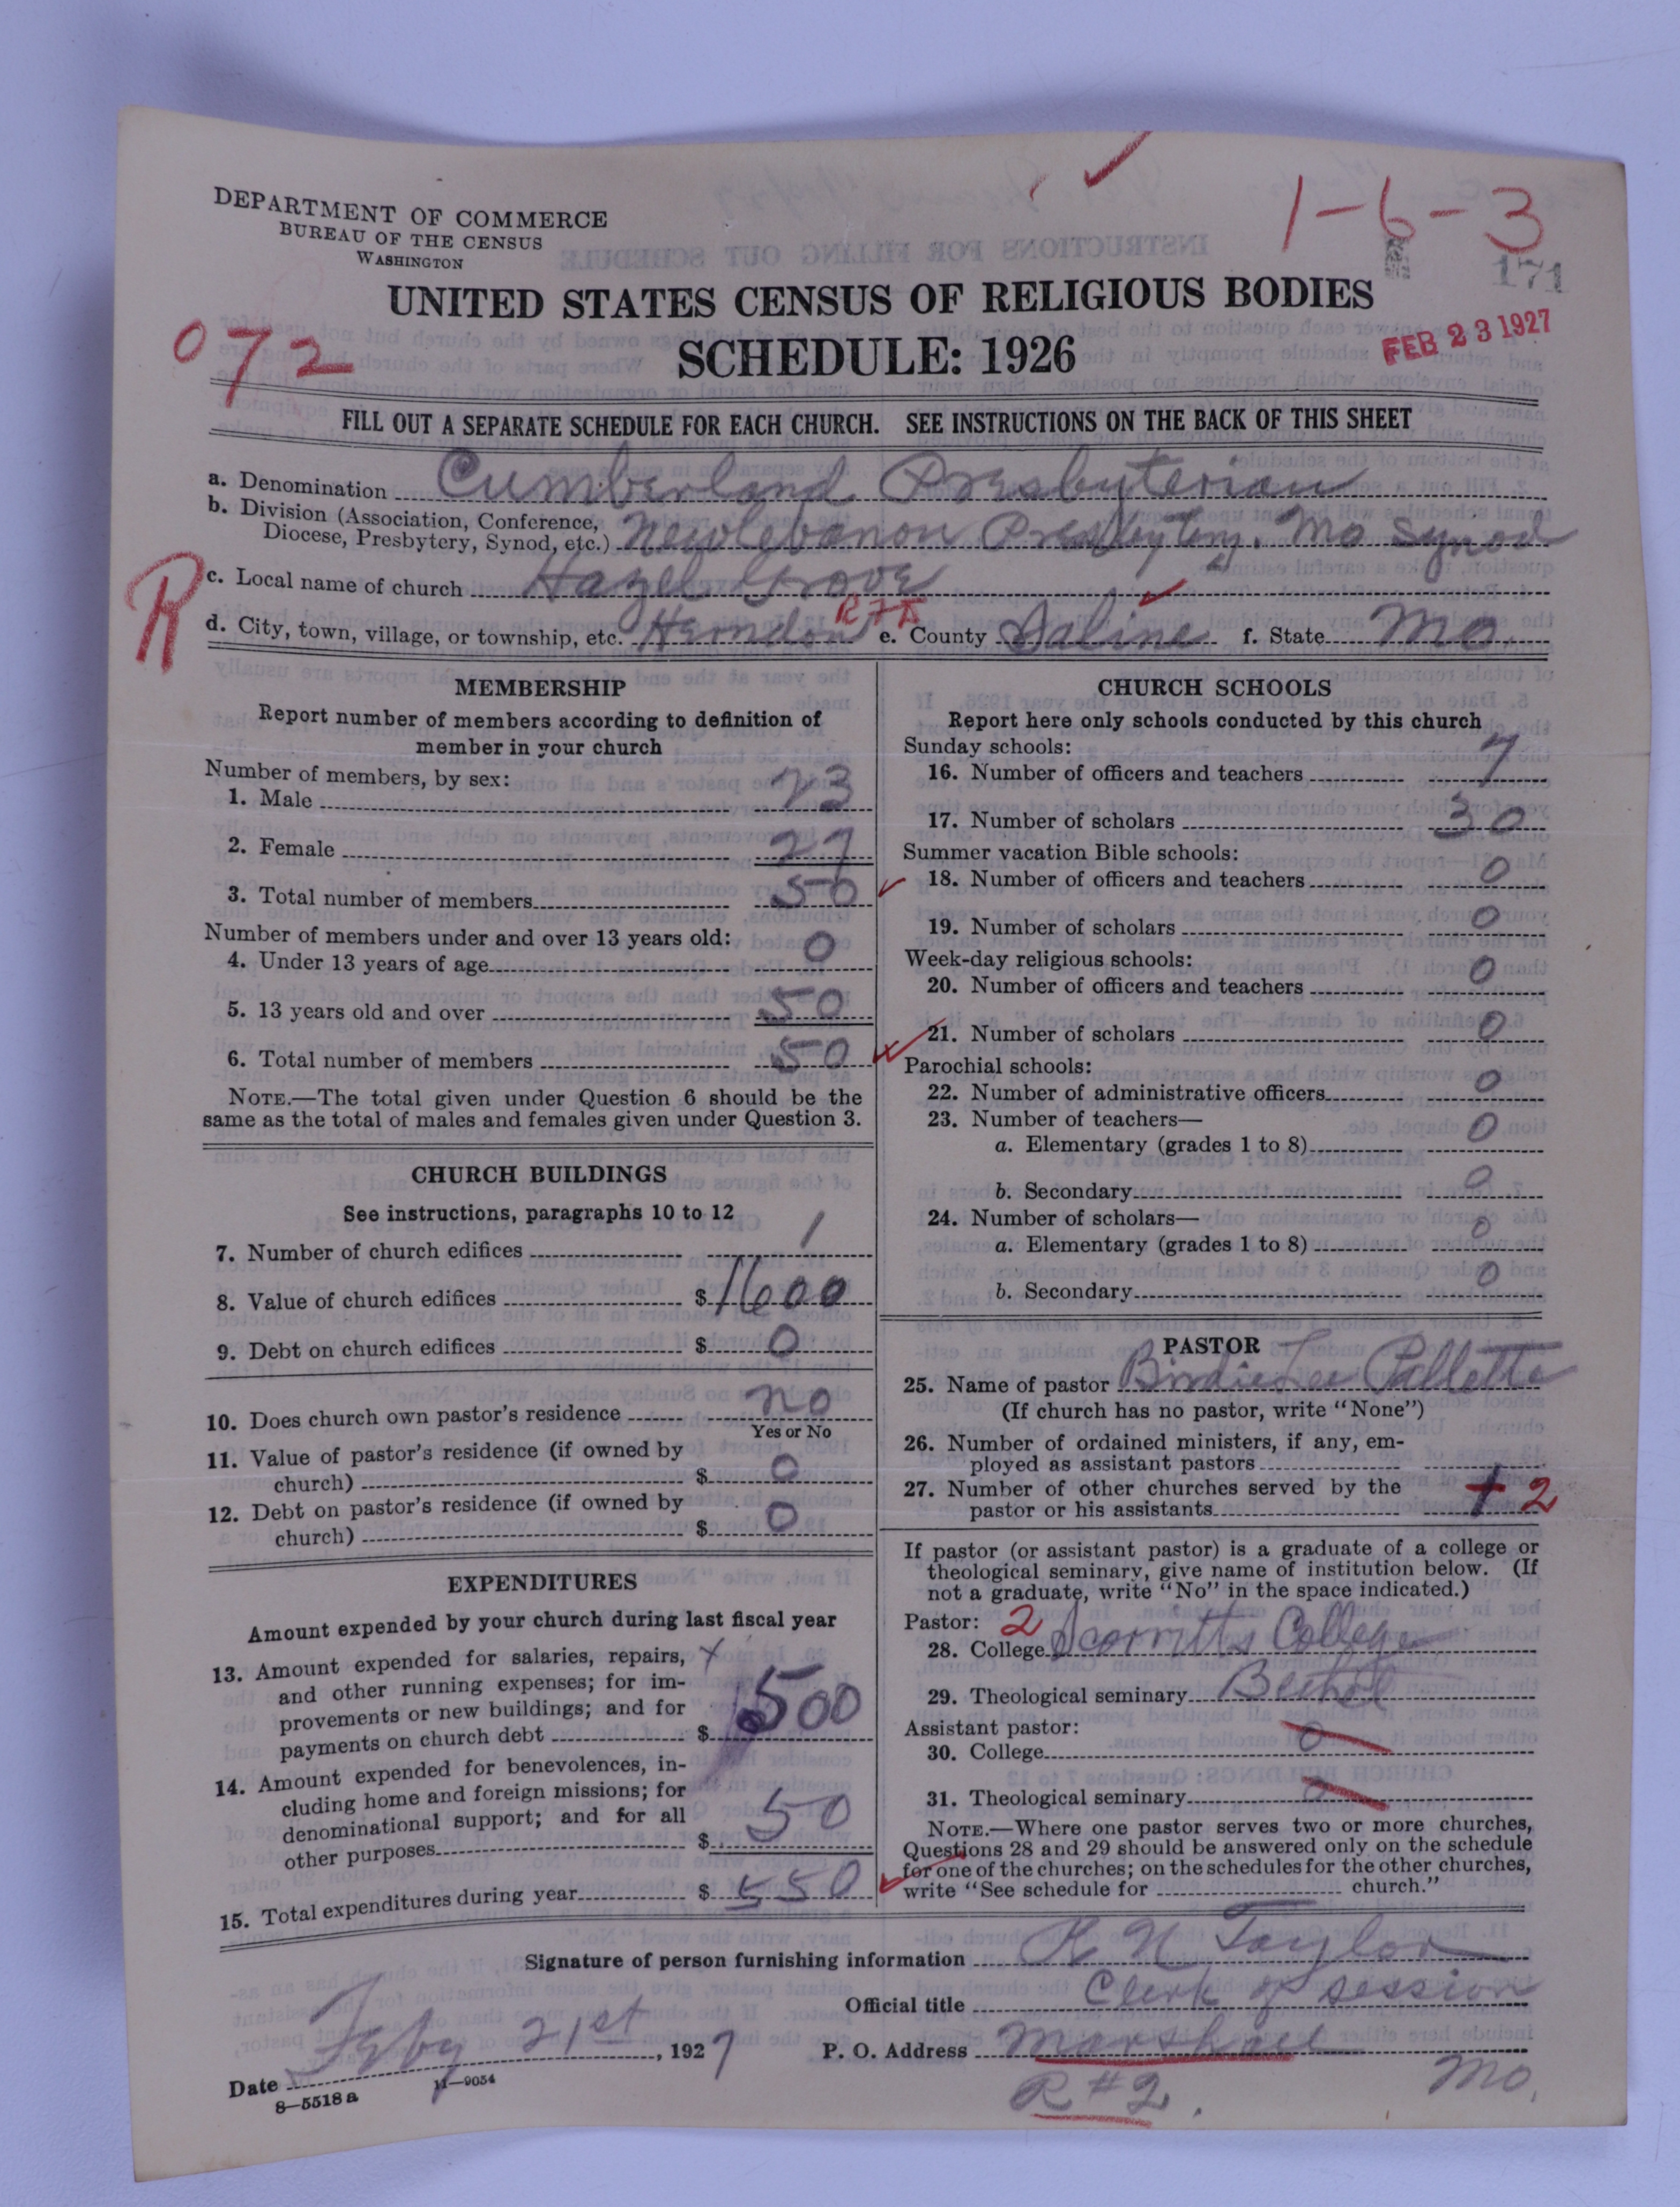 1-6-3
171
DEPARTMENT OF COMMERCE
BUREAU OF THE CENSUS
WASHINGTON
UNITED STATES CENSUS OF RELIGIOUS BODIES
072
SCHEDULE: 1926
FEB 23 1927
FILL OUT A SEPARATE SCHEDULE FOR EACH CHURCH. SEE INSTRUCTIONS ON THE BACK OF THIS SHEET
a. Denomination Cumberland Presbyterian
b. Division (Association, Conference, Diocese, Presbytery, Synod, etc.) New Lebanon Presbytery. Mo Synod
R
c. Local name of church Hazel Grove
d. City, town, village, or township, etc. Herndon e. County Saline f. State Mo.
MEMBERSHIP
Report number of members according to definition of
member in your church
Number of members, by sex:
1. Male 23
2. Female 27
3. Total number of members 50
Number of members under and over 13 years old:
4. Under 13 years of age 0
5. 13 years old and over 50
6. Total number of members 50
NOTE.—The total given under Question 6 should be the
same as the total of males and females given under Question 3.
CHURCH BUILDINGS
See instructions, paragraphs 10 to 12
7. Number of church edifices 1
8. Value of church edifices $1600
9. Debt on church edifices $0
10. Does church own pastor's residence no
Yes or No
11. Value of pastor's residence (if owned by
church) $0
12. Debt on pastor's residence (if owned by
church) $0
EXPENDITURES
Amount expended by your church during last fiscal year
13. Amount expended for salaries, repairs,
and other running expenses; for im-
provements or new buildings; and for
payments on church debt $500
14. Amount expended for benevolences, in-
cluding home and foreign missions; for
denominational support; and for all
other purposes $50
15. Total expenditures during year $550
CHURCH SCHOOLS
Report here only schools conducted by this church
Sunday schools:
16. Number of officers and teachers 7
17. Number of scholars 30
Summer vacation Bible schools:
18. Number of officers and teachers 0
19. Number of scholars 0
Week-day religious schools:
20. Number of officers and teachers 0
21. Number of scholars 0
Parochial schools:
22. Number of administrative officers 0
23. Number of teachers—
a. Elementary (grades 1 to 8) 0
b. Secondary 0
24. Number of scholars—
a. Elementary (grades 1 to 8) 0
b. Secondary 0
PASTOR
25. Name of pastor Birdie Lee Pallette
(If church has no pastor, write "None")
26. Number of ordained ministers, if any, em-
ployed as assistant pastors
27. Number of other churches served by the
pastor or his assistants 2
If pastor (or assistant pastor) is a graduate of a college or
theological seminary, give name of institution below. (If
not a graduate, write "No" in the space indicated.)
Pastor: 2
28. College Scarritts College
29. Theological seminary
Assistant pastor:
30. College 0
31. Theological seminary 0
NOTE.—Where one pastor serves two or more churches,
Questions 28 and 29 should be answered only on the schedule
for one of the churches; on the schedules for the other churches,
write "See schedule for church."
Signature of person furnishing information R. N. Taylor
Official title Clerk of session
Date Feby 21st, 1927 P. O. Address Marshall
R #2. Mo.
8—5518 a 11—9054